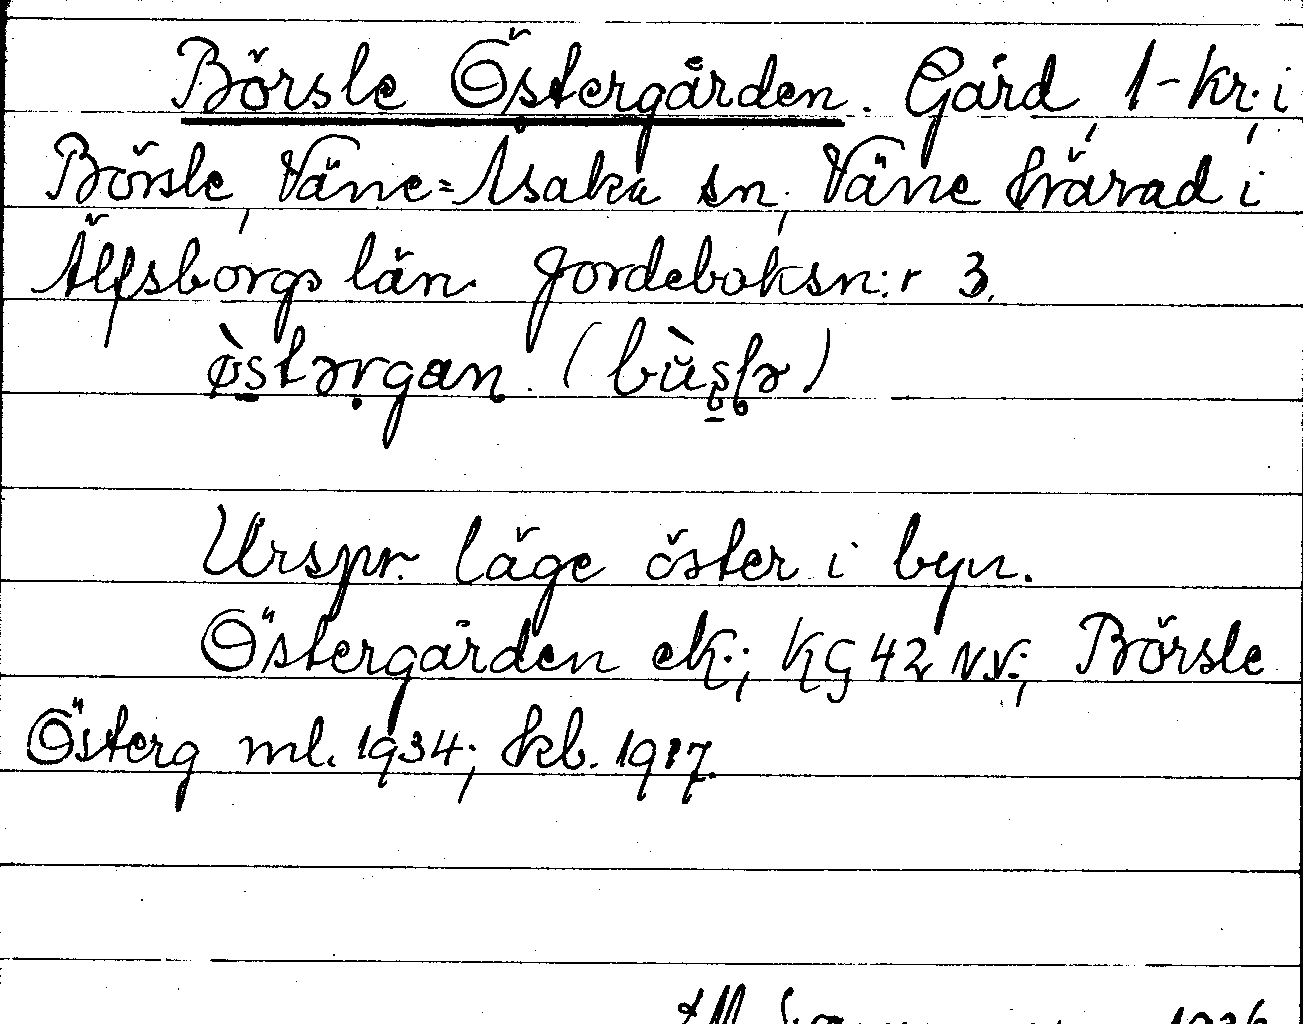 Börsle Östergården. Gård, 1-kr., i
Börsle, Väne=Åsaka sn, Väne härad i
Älfsborgs län. Jordeboksn:r 3.
ø̀stərgan. (bùs̥lə)
Urspr. läge öster i byn.
Östergården ek.; KG 42 N.V.; Börsle
Österg ml. 1934; kb. 1917.